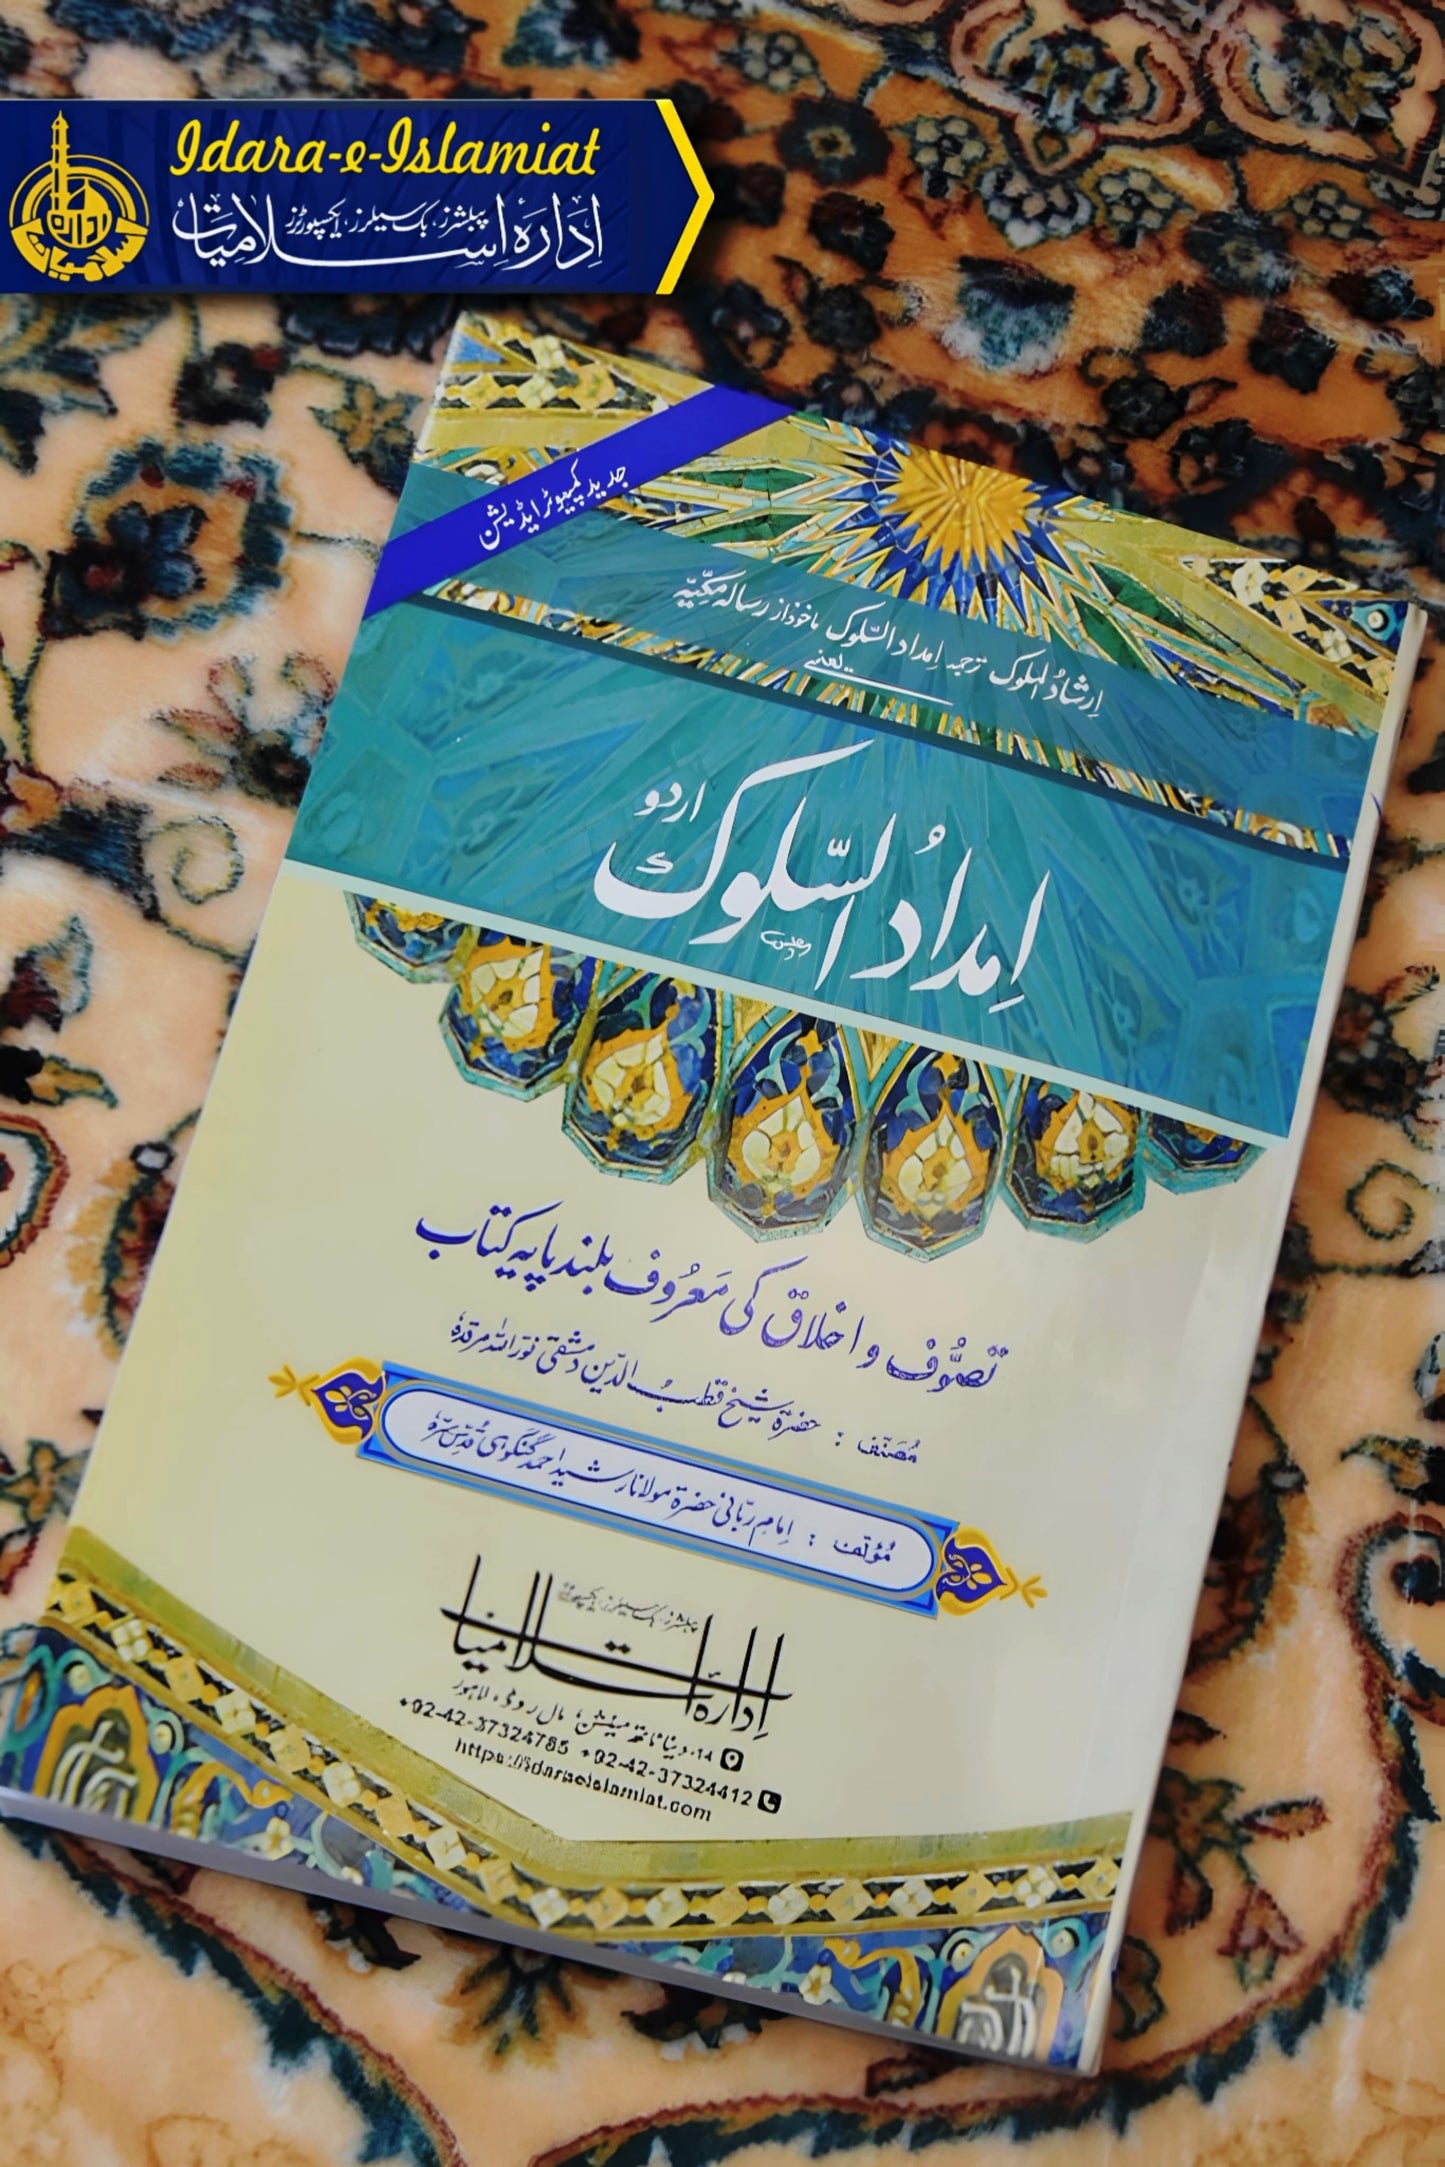 Idara-e-Islamiat
پبلشرز، بک سیلرز، ایکسپورٹرز
اِدَارَہ اِسْلَامِیَات
جدید کمپیوٹر ایڈیشن
اِرشادُ الملوک ترجمہ اِمداد السّلوک ماخوذ از رسالہ مکّیّہ
یعنی
اِمدادُ السّلوک
اردو
تصوُّف و اخلاق کی مَعرُوف بلند پایہ کتاب
مُصنّف : حضرۃ شیخ قطبُ الدّین دمشقی نوّر اللہ مرقدہٗ
مُؤلّف : اِمامِ ربّانی حضرۃ مولانا رشید احمد گنگوہی قُدّس سرّہٗ
پبلشرز، بک سیلرز، ایکسپورٹرز
اِدارَہ اِسلامیات
۱۴- دینا ناتھ مینشن، مال روڈ، لاہور
+92-42-37324785 +92-42-37324412
https://idaraeislamiat.com